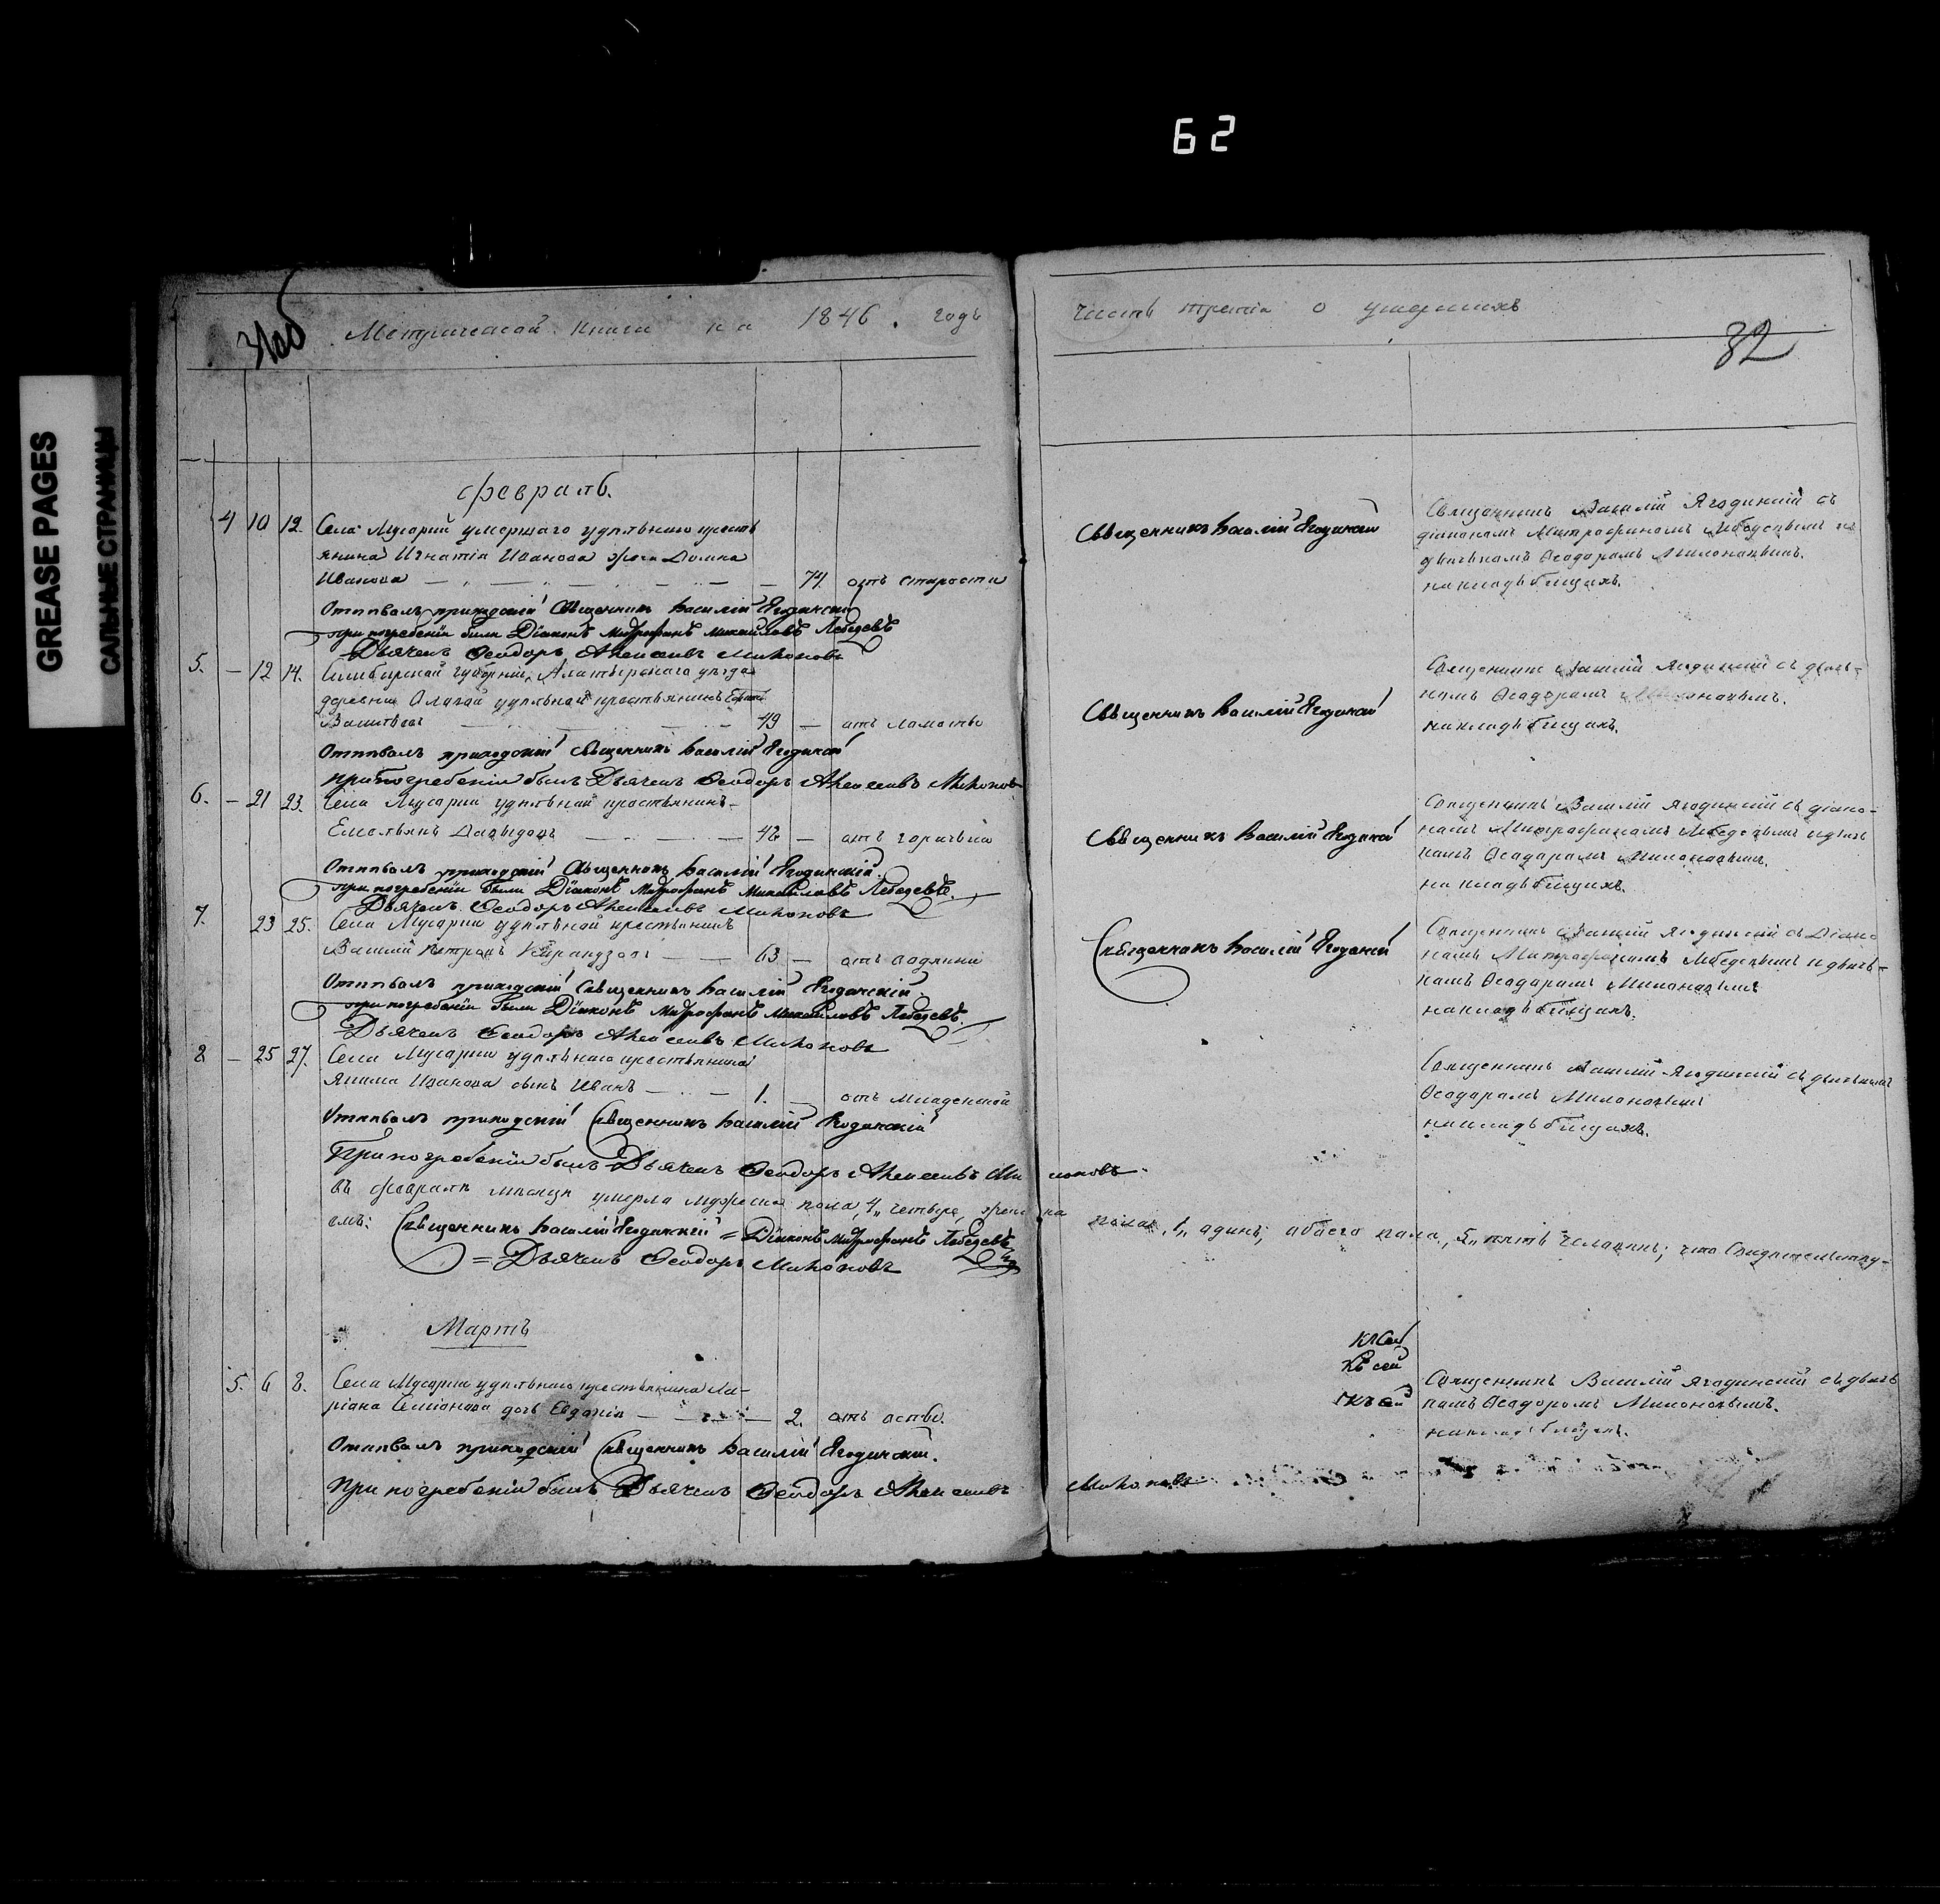 62
GREASE PAGES
САЛЬНЫЕ СТРАНИЦЫ
31об
Метрической книги на 1846. годъ
часть третiя о умершихъ
32
февраль.
4 10 12. Села Мусорки умершаго удѣльнаго кресть
янина Игнатiя Иванова жена Домна
Иванова — 74. отъ старости
Отпѣвалъ приходскiй Священникъ Василiй Ягодинскiй
при погребенiи были Дiаконъ Митрофанъ Михайловъ Лебедевъ
Дьячекъ Ѳеодоръ Алексѣевъ Милоновъ
Священникъ Василiй Ягодинскiй
Священникъ Василiй Ягодинскiй съ
дiакономъ Митрофаномъ Лебедевымъ и
дьячькомъ Ѳеодоромъ Милоновымъ.
на кладьбищахъ.
5. — 12 14. Симбирской губернiи, Алатырскаго уѣзда
деревни удѣльной крестьянинъ
Васильевъ — 49 —
Отпѣвалъ приходскiй Священникъ Василiй Ягодинскiй
при погребенiи былъ Дьячекъ Ѳеодоръ Алексѣевъ Милоновъ
Священникъ Василiй Ягодинскiй
Священникъ Василiй Ягодинскiй съ дьячь-
комъ Ѳеодоромъ Милоновымъ.
на кладьбищахъ.
6. — 21 23. Села Мусорки удѣльной крестьянинъ
Емельянъ Давыдовъ — 42 — отъ горячьки
Отпѣвалъ приходскiй Священникъ Василiй Ягодинскiй.
при погребенiи были Дiаконъ Митрофанъ Михайловъ Лебедевъ.
Дьячекъ Ѳеодоръ Алексѣевъ Милоновъ
Священникъ Василiй Ягодинскiй
Священникъ Василiй Ягодинскiй съ дiако-
номъ Митрофаномъ Лебедевымъ и дьячь
комъ Ѳеодоромъ Милоновымъ.
на кладьбищахъ.
7. 23 25. Села Мусорки удѣльной крестьянинъ
Василiй Петровъ — 63 — отъ водянки
Отпѣвалъ приходскiй Священникъ Василiй Ягодинскiй.
при погребенiи были Дiаконъ Митрофанъ Михайловъ Лебедевъ.
Дьячекъ Ѳеодоръ Алексѣевъ Милоновъ
Священникъ Василiй Ягодинскiй
Священникъ Василiй Ягодинскiй съ Дiако
номъ Митрофаномъ Лебедевымъ и дьячь-
комъ Ѳеодоромъ Милоновымъ
на кладьбищахъ.
8 — 25 27. Села Мусорки удѣльнаго крестьянина
Якима Иванова сынъ Иванъ — 1. — отъ младенской
Отпѣвалъ приходскiй Священникъ Василiй Ягодинскiй
При погребенiи былъ Дьячекъ Ѳеодоръ Алексѣевъ Милоновъ.
Священникъ Василiй Ягодинскiй съ дьячькомъ
Ѳеодоромъ Милоновымъ
на кладьбищахъ.
въ февралѣ мѣсяцѣ умерло мужеска пола, 4, четыре, женска пола, 1, одинъ; обоего пола, 5, пять человѣкъ; что свидѣтельству-
емъ: Священникъ Василiй Ягодинскiй = Дiаконъ Митрофанъ Лебедевъ
= Дьячекъ Ѳеодоръ Милоновъ
Мартъ
5. 6 8. Села Мусорки удѣльнаго крестьянина Ла-
рiона Семiонова дочь Евдокiя — 2. отъ оспы.
Отпѣвалъ приходскiй Священникъ Василiй Ягодинскiй.
При погребенiи былъ Дьячекъ Ѳеодоръ Алексѣевъ Милоновъ
Къ сей
Священникъ Василiй Ягодинскiй съ дьячь
комъ Ѳеодоромъ Милоновымъ.
на кладьбищахъ.